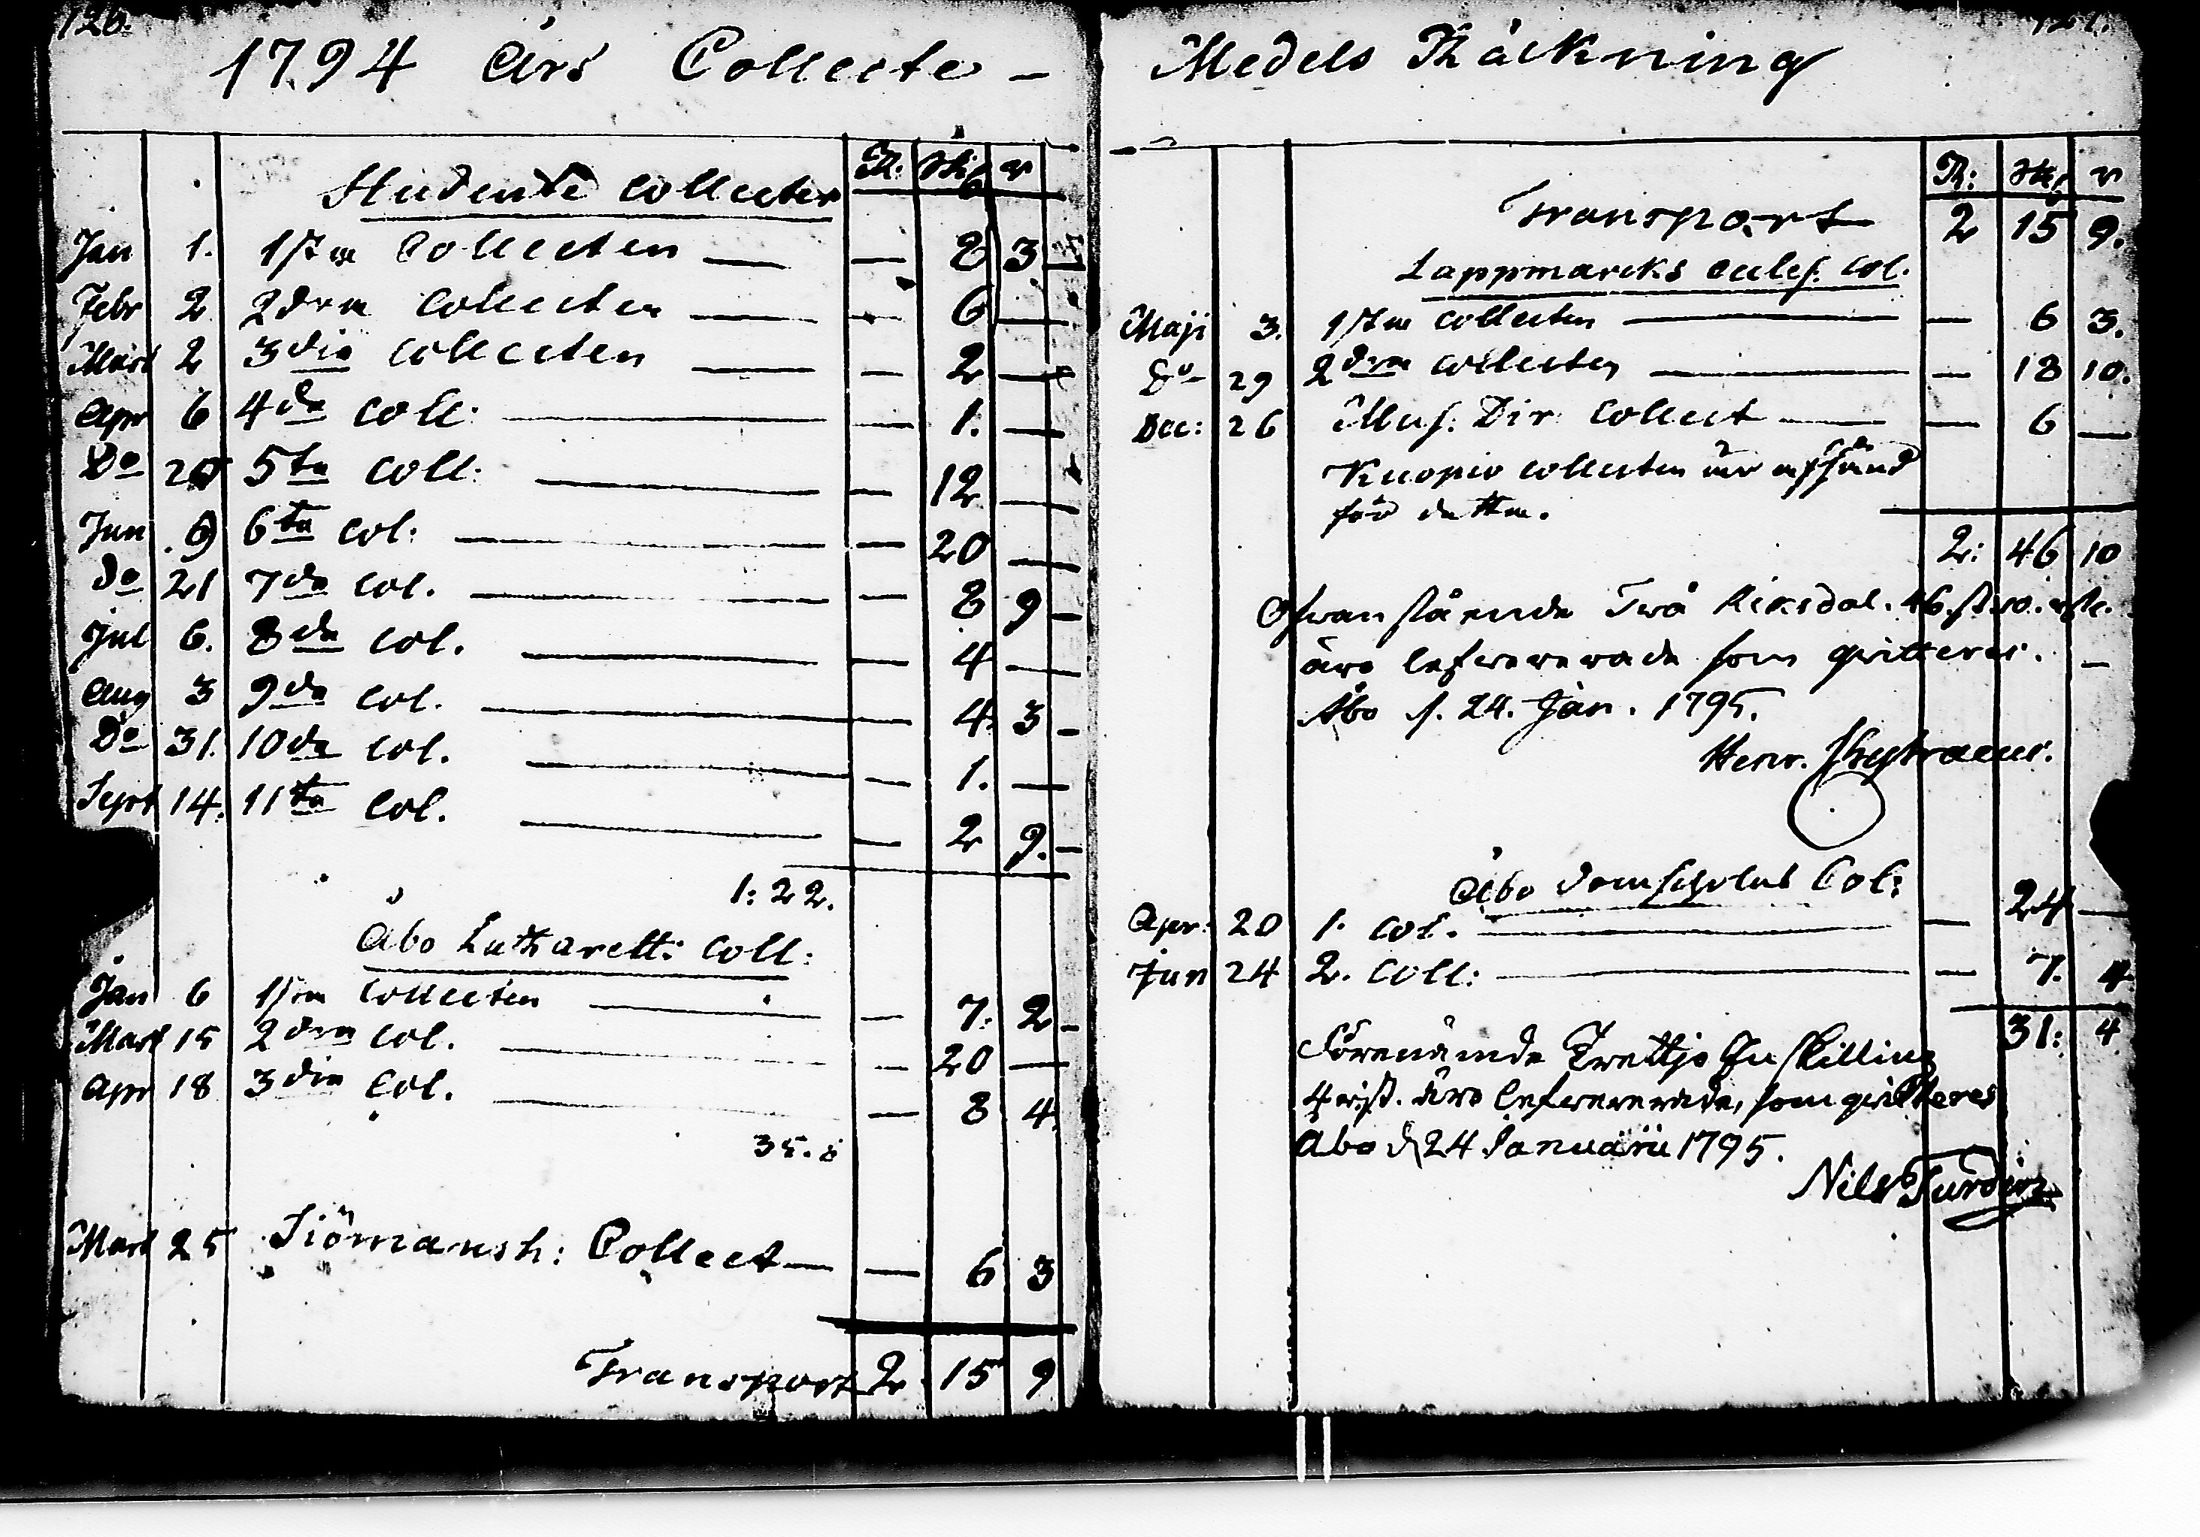 126.
1794 Års Collecte –
Studente Collecter R. sk. r
Jan 1. 1sta Collecten — — 8 3
Febr 2 2dra Collecten — — 6 —
Mart 2 3die Collecten — — 2 —
Apr 6 4de Coll: — — 1. —
Do 20 5ta Coll: — — 12 —
Jun 9 6ta Col: — — 20 —
do 21 7de Col. — — 8 9
Jul 6. 8de Col. — — 4 —
Aug 3 9de Col. — — 4. 3
Do 31. 10de Col. — — 1. —
Sept 14. 11te Col. — — 2 9.
1: 22.
Åbo Latzarett: Coll:
Jan 6 1sta Collecten — — 7: 2
Mart 15 2dra Col. — — 20 —
Apr 18 3die Col. — — 8 4.
35. 6
Mart 25 Siömansh: Collect — — 6 3
Transport 2 15 9
Medels Räckning
R: sk. r
Transport 2 15 9.
Lappmarcks eccles. Col.
Maji 3. 1sta Collecten — — 6 3.
Do 29 2dra Collecten — — 18 10.
Dec: 26 Mus. Dir: Collect — — 6 —
Kuopio Collecten är afsänd
för detta.
2: 46 10
Ofwanstående Twå Riksdal. 46. sk. 10. rst.
äro lefwererade som qvitteras.
Åbo d. 24. Jan. 1795.
Henr.
Åbo Domscholas Col:
Apr: 20 1. Col. — — 24 —
Jun 24 2. Coll: — — 7. 4
31: 4
Förenämde Trettjo En skilling
4 rst. äro lefwererade, som qvitteras
Åbo d 24 Januarii 1795.
Nils